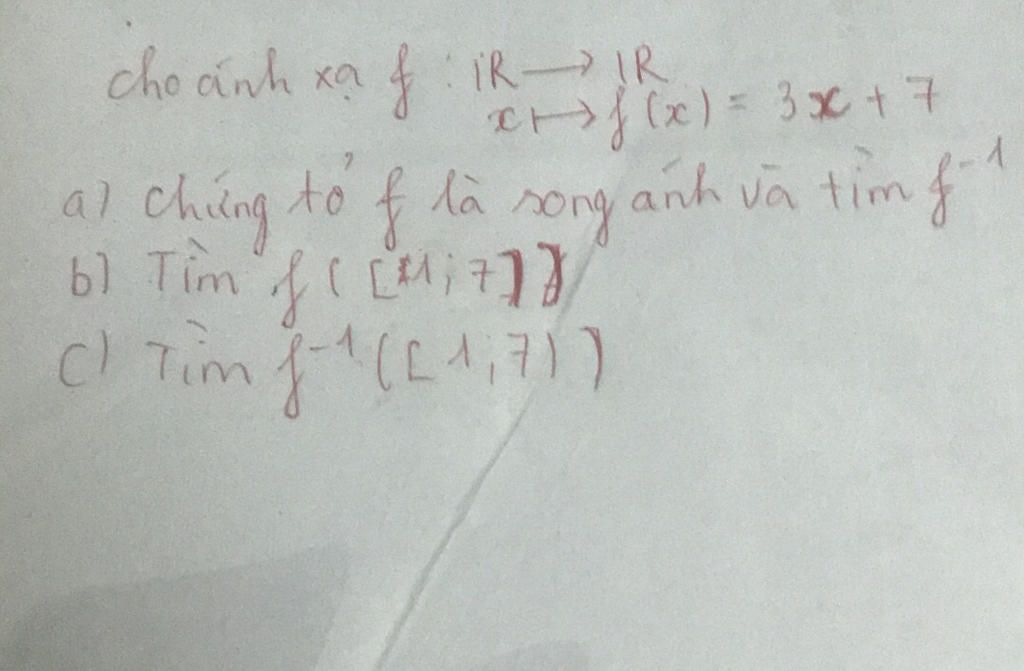 Cho ánh xạ f : IR → IR
x ↦ f(x) = 3x + 7
a) Chứng tỏ f là song ánh và tìm f⁻¹
b) Tìm f([1;7])
c) Tìm f⁻¹([1;7))